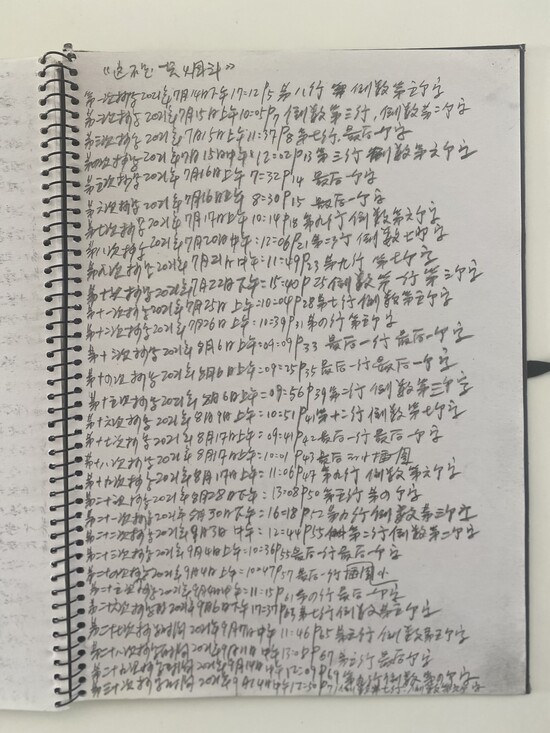 《这不是一只烟斗》
第一次抄写2021年7月14日下午17:12 P5 第八行 倒数第五个字
第二次抄写2021年7月15日上午10:05 P7 倒数第三行,倒数第二个字
第三次抄写2021年7月15日上午11:37 P8 第七行,最后一个字
第四次抄写2021年7月15日中午12:02 P13 第三行 倒数第六个字
第五次抄写2021年7月16日上午7:32 P14 最后一个字
第六次抄写2021年7月16日上午8:30 P15 最后一个字
第七次抄写2021年7月17日上午10:14 P18 第九行 倒数第六个字
第八次抄写2021年7月20日中午:12:06 P21 第三行 倒数七个字
第九次抄写2021年7月21日中午:11:49 P23 第九行 第七个字
第十次抄写2021年7月22日下午:15:40 P25 倒数第一行 第三个字
第十一次抄写2021年7月25日上午:10:04 P28 第七行 倒数第五个字
第十二次抄写2021年7月26日上午:10:39 P31 第四行 第五个字
第十三次抄写2021年8月6日上午:09:09 P33 最后一行 最后一个字
第十四次抄写2021年8月6日上午:09:25 P35 最后一行最后一个字
第十五次抄写2021年8月6日上午:09:56 P39 第二行 倒数第三个字
第十六次抄写2021年8月9日上午:10:51 P41 第十二行 倒数第七个字
第十七次抄写2021年8月17日上午:09:41 P42 最后一行 最后一个字
第十八次抄写2021年8月17日上午:10:01 P43 最后 插图
第十九次抄写2021年8月17日上午:11:06 P47 第九行 倒数第六个字
第二十次抄写2021年8月28日下午:13:08 P50 第五行 第四个字
第二十一次抄写2021年8月30日下午:16:18 P52 第九行倒数第三个字
第二十二次抄写2021年9月3日中午:12:44 P55 第三行 倒数第二个字
第二十三次抄写2021年9月4日上午:10:36 P55 最后一行最后一个字
第二十四次抄写2021年9月4日上午:10:47 P57 最后一行 插图
第二十五次抄写2021年9月4日中午:11:15 P61 第四行 最后一个字
第二十六次抄写2021年9月6日下午17:37 P63 第七行 倒数第五个字
第二十七次抄写时间2021年9月7日中午11:46 P65 第五行 倒数第五个字
第二十八次抄写时间2021年9月11日中午13:08 P67 第五行最后个字
第二十九次抄写时间2021年9月14日中午12:09 P69 倒数第四个字
第三十次抄写时间2021年9月14日中午12:30 P71